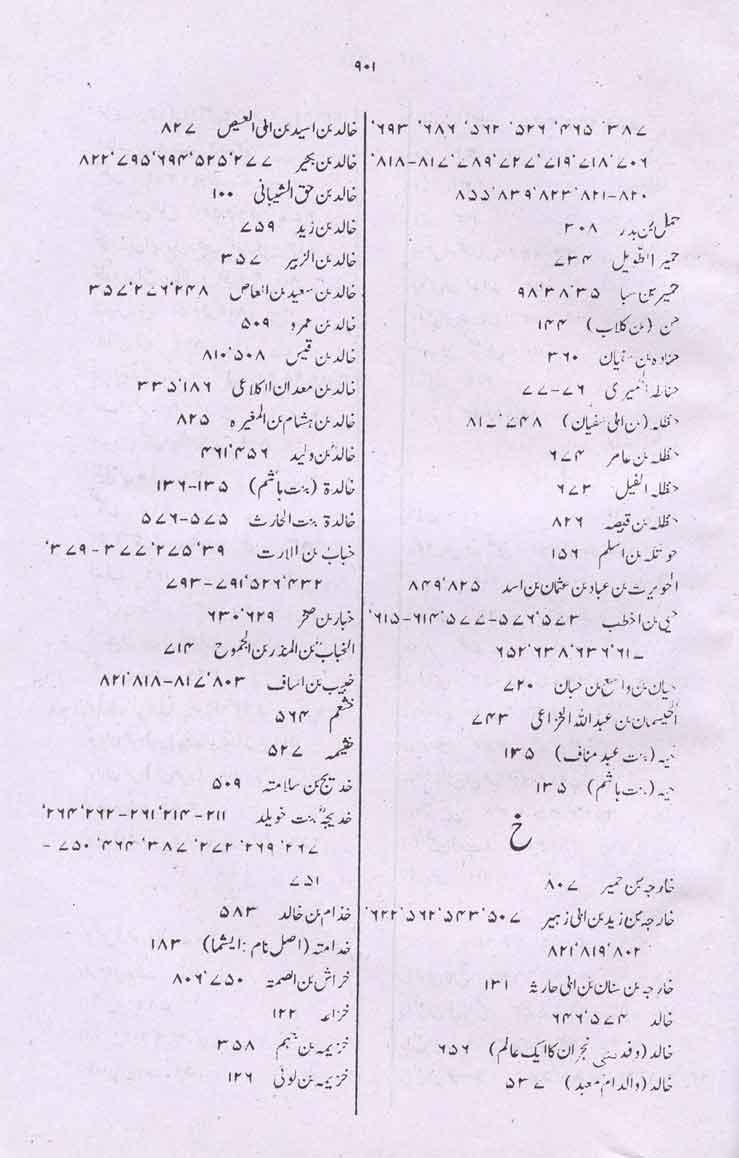 ۹۰۱
۳۸۷، ۴۶۵، ۵۲۶، ۵۶۲، ۶۸۶، ۶۹۳،
۷۰۶، ۷۱۸، ۷۱۹، ۷۲۷، ۷۸۹، ۸۱۷-۸۱۸،
۸۲۰-۸۲۱، ۸۲۳، ۸۳۹، ۸۵۵
حمل بن بدر ۳۰۸
حمیر الطویل ۷۳۴
حمیر بن سبا ۳۵، ۳۸، ۹۸
حن (بن کلاب) ۱۴۴
حنادہ بن ۳۶۰
حناطہ الحمیری ۷۶-۷۷
حنظلہ (بن ابی سفیان) ۷۴۸، ۸۱۷
حنظلہ بن عامر ۶۷۴
حنظلہ الفیل ۶۷۳
حنظلہ بن قبیصہ ۸۲۶
حوتکہ بن اسلم ۱۵۶
الحویرث بن عباد بن عثمان بن اسد ۸۲۵، ۸۴۹
حیی بن اخطب ۵۷۳، ۵۷۶-۵۷۷، ۶۱۴-۶۱۵،
۶۱۷، ۶۳۶، ۶۳۸، ۶۵۲
حیان بن واسع بن حبان ۷۲۰
الحیسمان بن عبداللہ الخزاعی ۷۴۳
حیہ (بنت عبد مناف) ۱۳۵
حیہ (بنت ہاشم) ۱۳۵
خ
خارجہ بن حمیر ۸۰۷
خارجہ بن زید بن ابی زہیر ۵۰۷، ۵۴۳، ۵۶۲، ۶۲۲،
۸۰۲، ۸۱۹، ۸۲۱
خارجہ بن سنان بن ابی حارثہ ۱۳۱
خالد ۵۷۴، ۶۴۶
خالد (وفد نجران کا ایک عالم) ۶۵۶
خالد (والد ام معبد) ۵۳۷
خالد بن اسید بن ابی العیص ۸۲۷
خالد بن بکیر ۲۷۷، ۵۲۵، ۶۹۴، ۷۹۵، ۸۲۲
خالد بن حق الشیبانی ۱۰۰
خالد بن زید ۷۵۹
خالد بن الزبیر ۳۵۷
خالد بن سعید بن العاص ۲۴۸، ۲۷۶، ۳۵۷
خالد بن عمرو ۵۰۹
خالد بن قیس ۵۰۸، ۸۱۰
خالد بن معدان الکلاعی ۱۸۶، ۳۳۵
خالد بن ہشام بن المغیرہ ۸۲۵
خالد بن ولید ۴۵۶، ۴۶۱
خالدۃ (بنت ہاشم) ۱۳۵-۱۳۶
خالدۃ بنت الحارث ۵۷۵-۵۷۶
خباب بن الارت ۳۹، ۲۷۵، ۳۷۷-۳۷۹،
۴۳۲، ۵۲۶، ۷۹۱-۷۹۳
خبار بن صخر ۶۲۹، ۶۳۰
الخباب بن المنذر بن الجموح ۷۱۴
خبیب بن اساف ۸۰۳، ۸۱۷-۸۱۸، ۸۲۱
خثعم ۵۶۴
خثیمہ ۵۲۷
خدیج بن سلامتہ ۵۰۹
خدیجہ بنت خویلد ۲۱۱-۲۱۴، ۲۶۱-۲۶۲، ۲۶۴،
۲۶۷، ۲۶۹، ۲۷۲، ۳۸۷، ۴۶۴، ۷۵۰-
۷۵۱
خذام بن خالد ۵۸۳
خدامتہ (اصل نام: ایشما) ۱۸۳
خراش بن الصمتہ ۷۵۰، ۸۰۶
خزاعہ ۱۲۲
خزیمہ بن جہم ۳۵۸
خزیمہ بن لوئی ۱۲۶